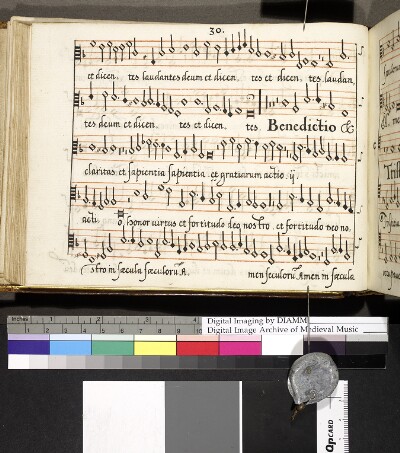 30.
et dicen. tes laudantes deum et dicen. tes et dicen. tes. laudan
tes deum et dicen. tes et dicen. tes. Benedictio &
claritas. et sapientia sapientia. et gratiarum actio. ij.
acti o, honor uirtus et fortitudo deo nostro. et fortitudo deo no.
stro in sæcula sæculorū A. men seculorū Amen in sæcula
inches 1 2 3 4
Digital Imaging by DIAMM
Digital Image Archive of Medieval Music
QPCARD